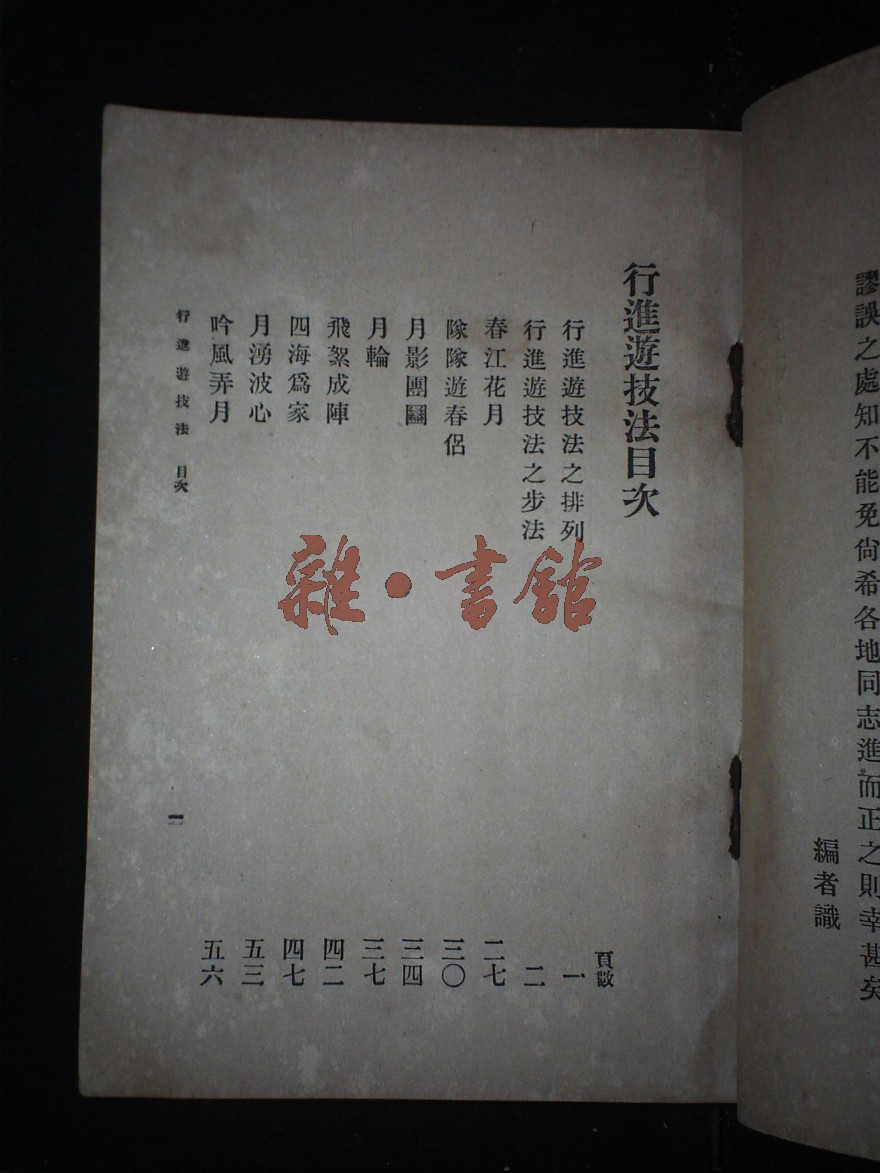 謬誤之處知不能免尙希各地同志進而正之則幸甚矣
編者識
行進遊技法目次
頁數
行進遊技法之排列 一
行進遊技法之步法 二
春江花月 二七
隊隊遊春侶 三〇
月影團圞 三四
月輪 三七
飛絮成陣 四二
四海爲家 四七
月湧波心 五三
吟風弄月 五六
行進遊技法 目次
一
雜·書館